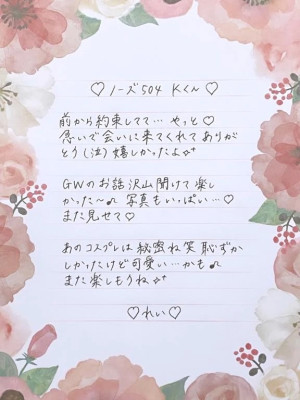 ♡ノーズ504 Kくん♡
前から約束してて… やっと♡
急いで会いに来てくれて ありが
とう(泣) 嬉しかったよ✨
GWのお話 沢山聞けて 楽し
かった〜♪ 写真もいっぱい…♡
また見せて♡
あのコスプレは秘密ね笑 恥ずか
しかったけど可愛い…かも♪
また楽しもうね✨
♡れい♡